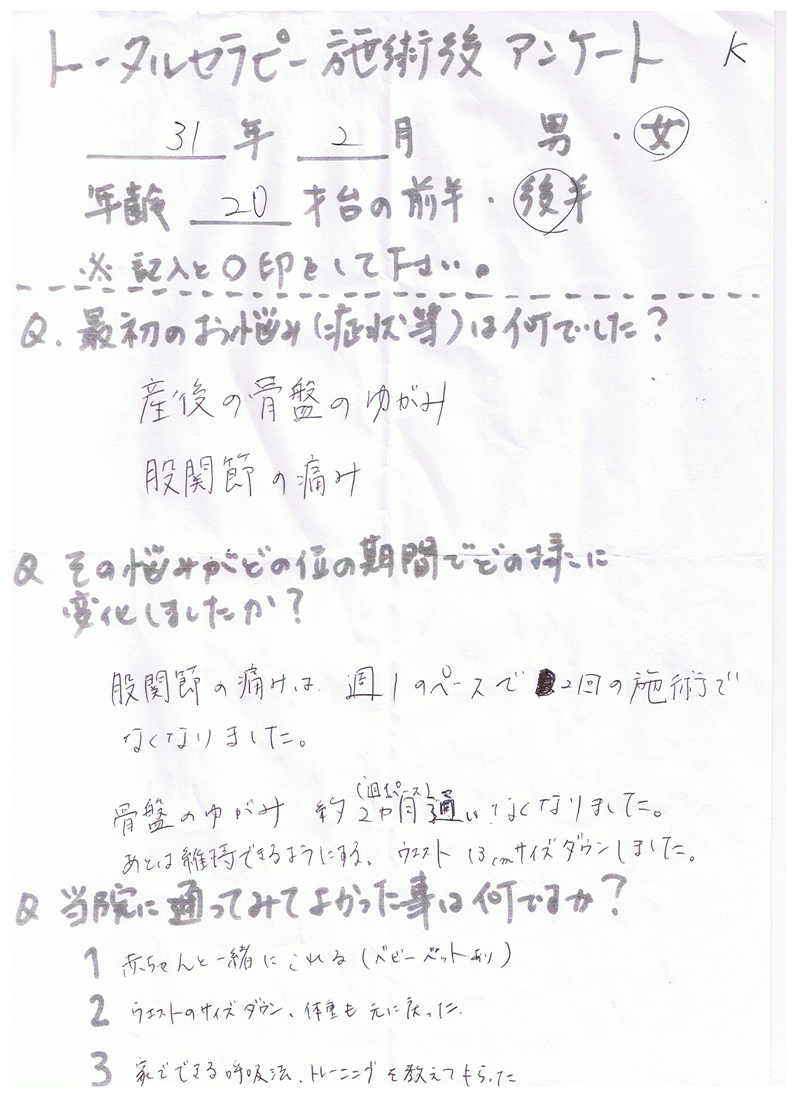 トータルセラピー施術後 アンケート K
31年 2月 男・女
年齢 20 才台の前半・後半
※ 記入と〇印をして下さい。
Q. 最初のお悩み(症状等)は何でした?
産後の骨盤のゆがみ
股関節の痛み
Q その悩みがどの位の期間でどの様に
変化しましたか?
股関節の痛みは、週1のペースで 2回の施術で
なくなりました。
(週1ペース)
骨盤のゆがみ 約2ヵ月通い、なくなりました。
あとは維持できるようにする。 ウエスト 13cmサイズダウンしました。
Q 当院に通ってみてよかった事は何ですか?
1 赤ちゃんと一緒にこれる(ベビーベットあり)
2 ウエストのサイズダウン、体重も元に戻った
3 家でできる呼吸法、トレーニングを教えてもらった